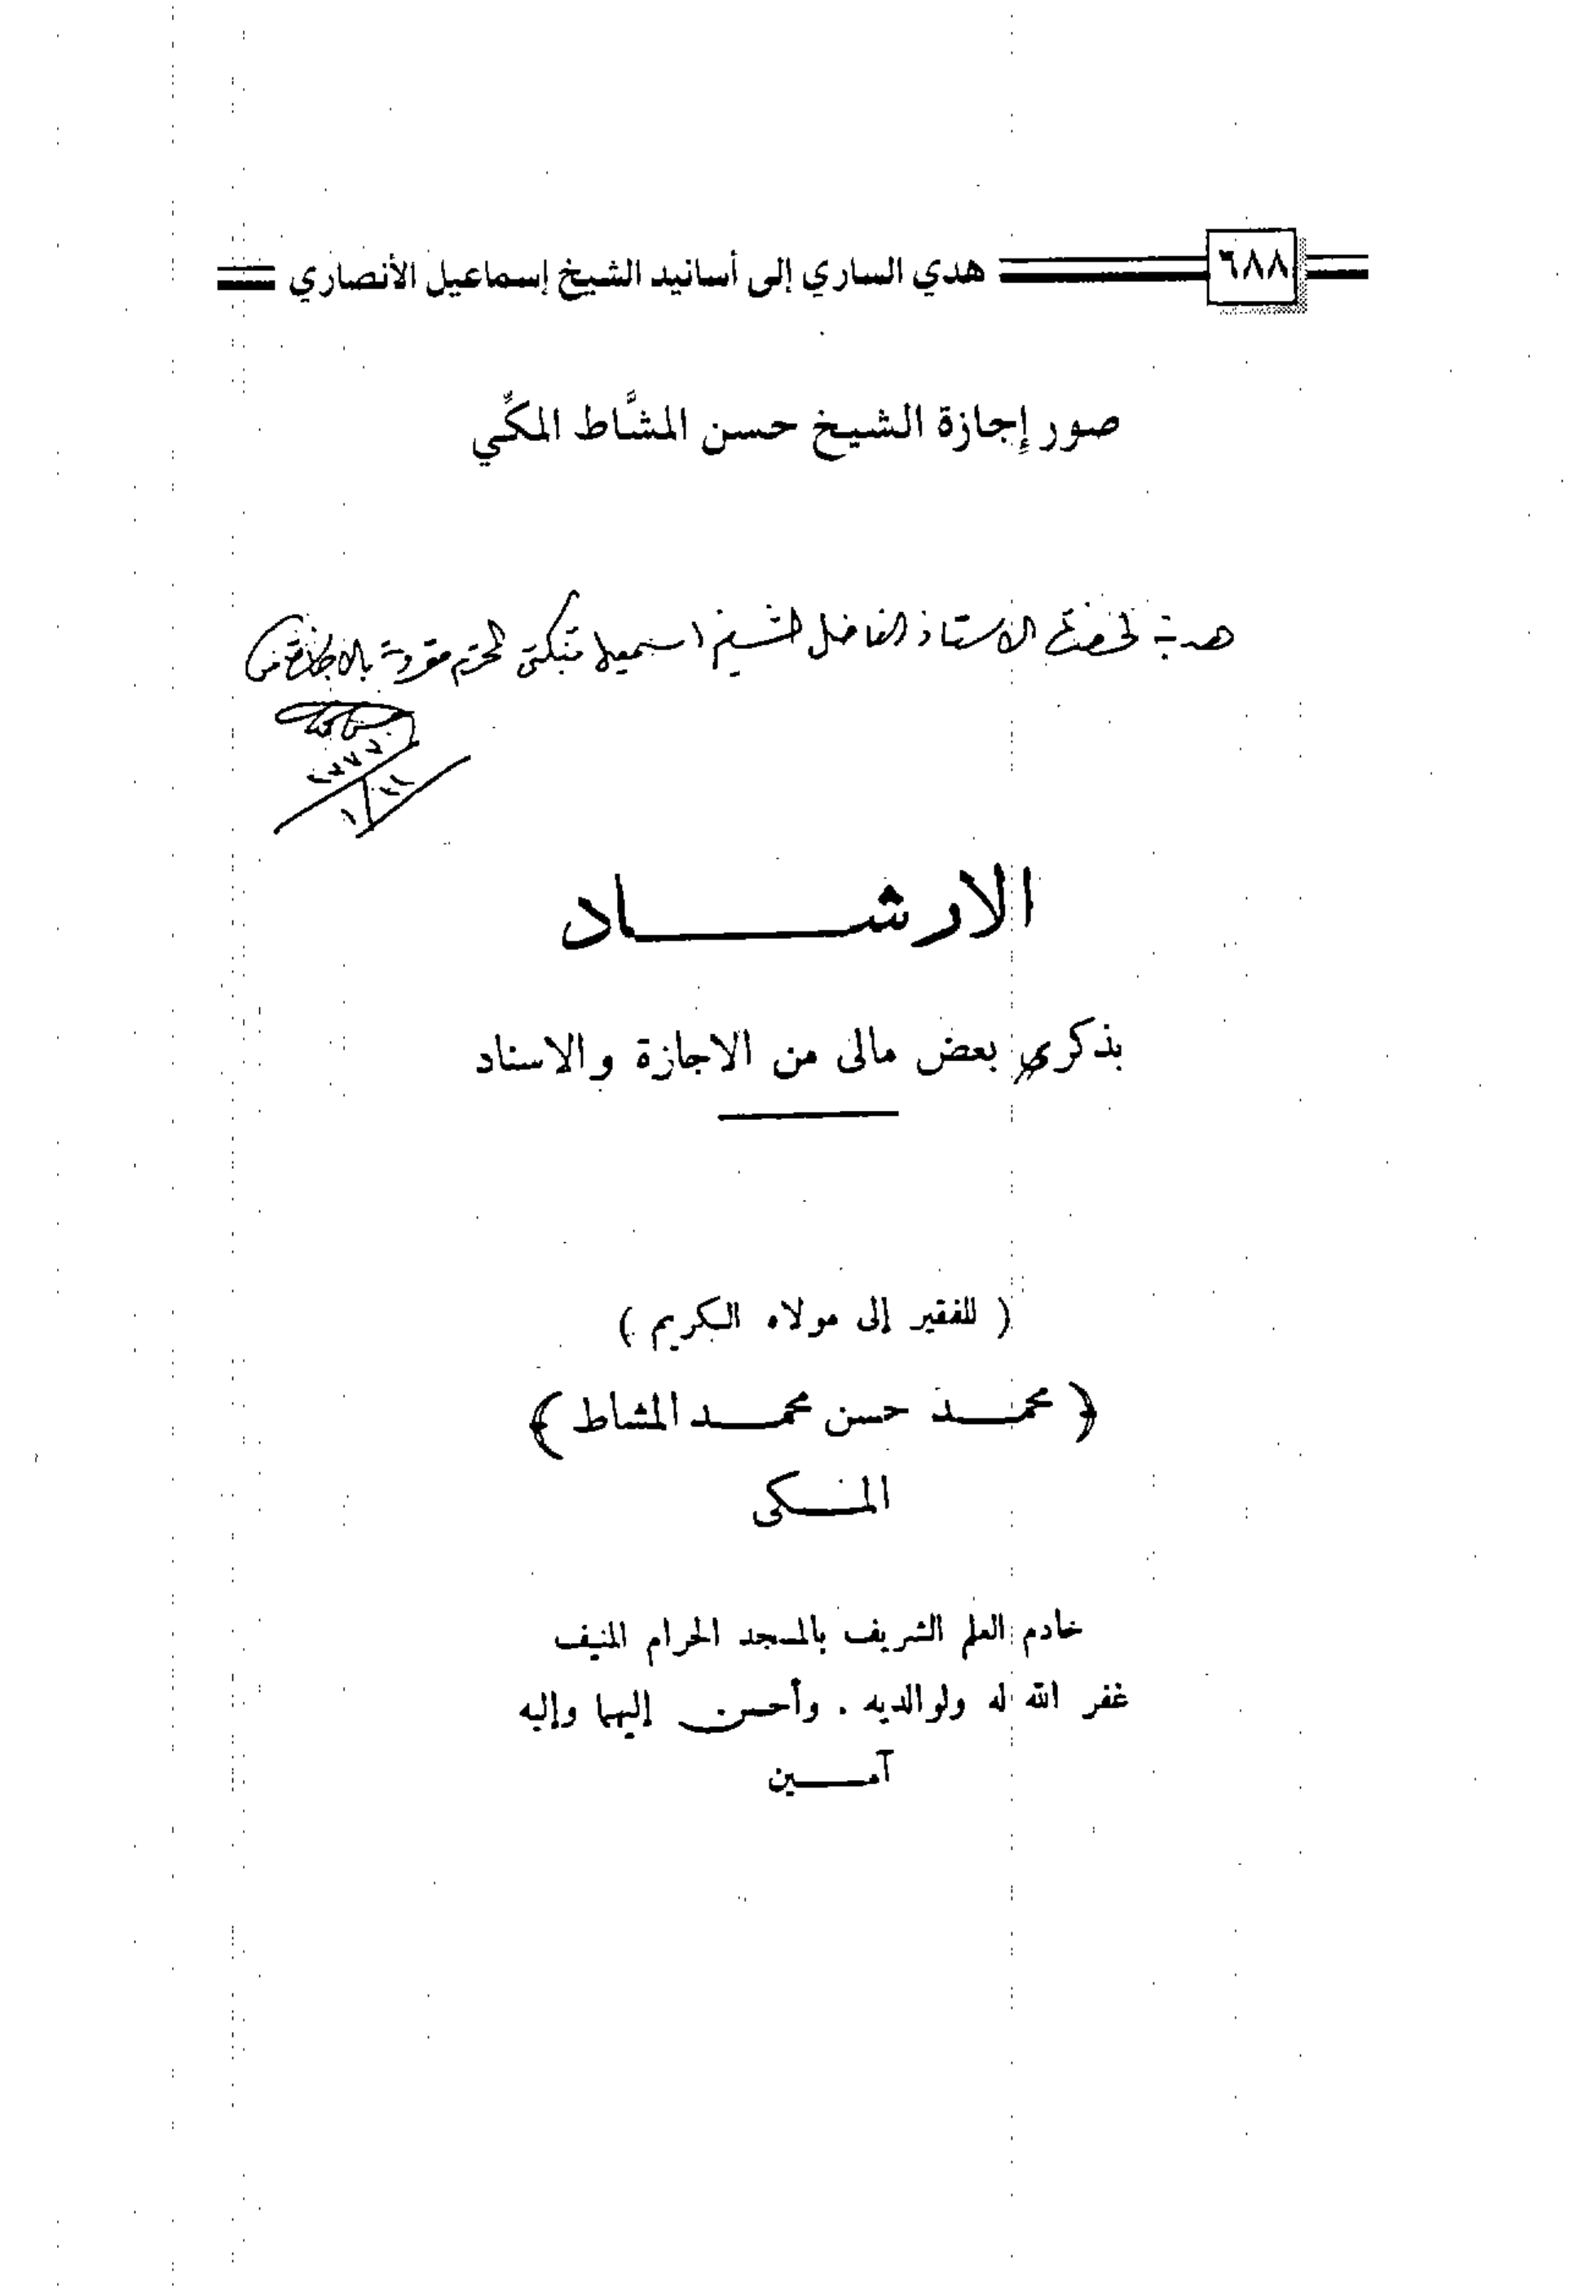 ٦٨٨ هدي الساري إلى أسانيد الشيخ إسماعيل الأنصاري
صور إجازة الشيخ حسن المشَّاط المكِّي
هدية لحضرة الاستاذ الفاضل الشيخ اسمعيل تنبكتي المحترم مقرونة بالاجازة من
الارشاد
بذكرى بعض مالى من الاجازة والاسناد
( للفقير إلى مولاه الكريم )
﴿ محمد حسن محمد المشاط ﴾
المكى
خادم العلم الشريف بالمسجد الحرام المنيف
غفر الله له ولوالديه . وأحسن إليهما وإليه
آمين